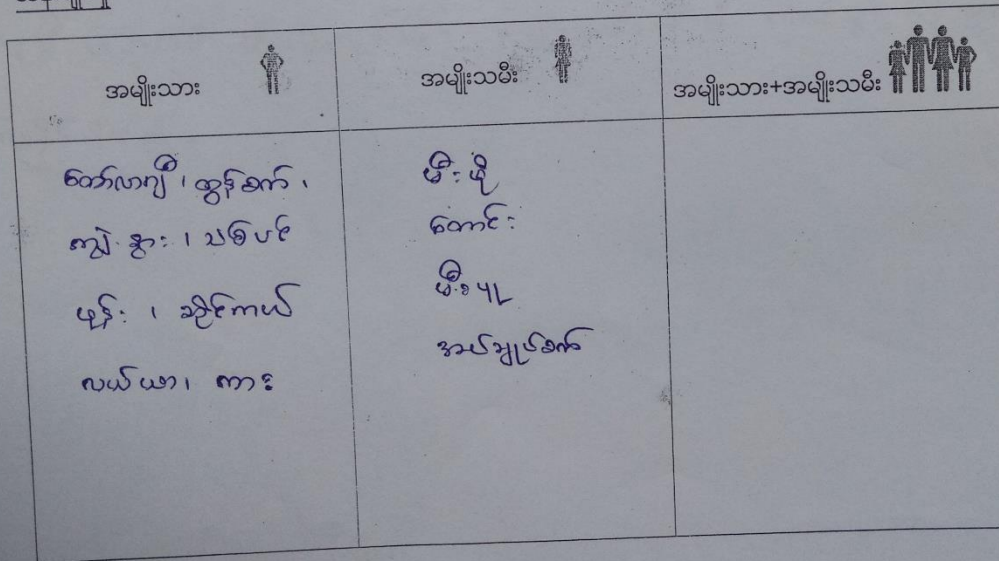 အမျိုးသား
အမျိုးသမီး
အမျိုးသား+အမျိုးသမီး
ထော်လာဂျီ၊ ထွန်စက်၊
ကျွဲ နွား၊ သစ်ပင်
ဖုန်း၊ ဆိုင်ကယ်
လယ်ယာ၊ ကား
မီးဖို
တောင်း
အပ်ချုပ်စက်